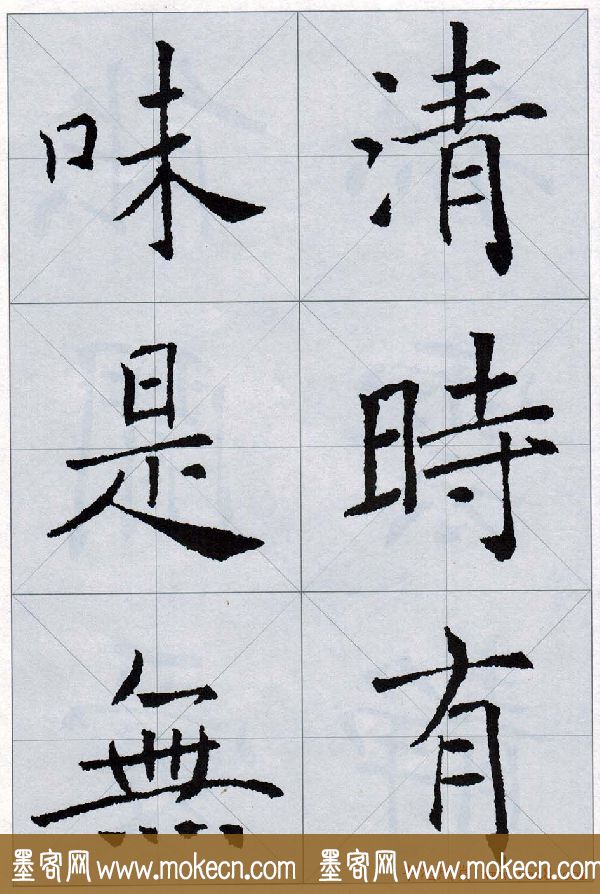 清時有
味是無
墨客网 www.mokecn.com 墨客网 www.mokecn.com